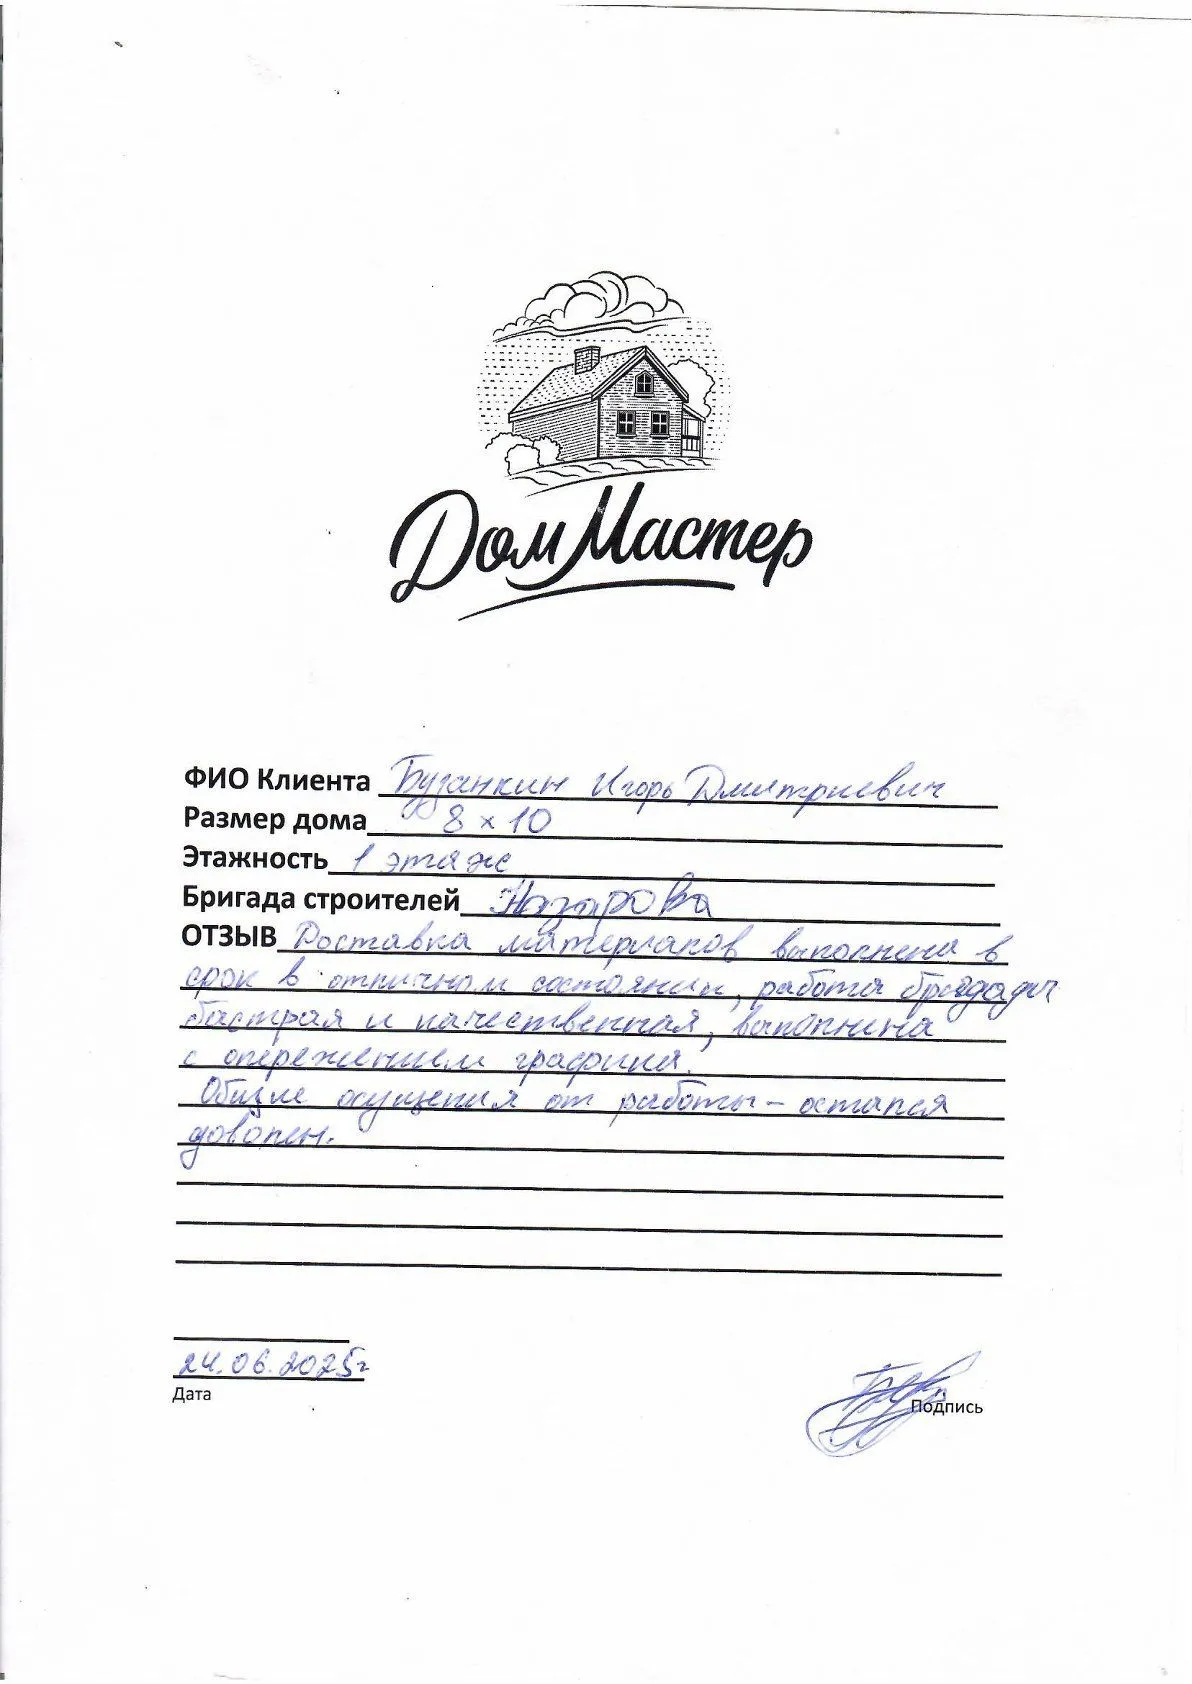 ДомМастер
ФИО Клиента Бузанкин Игорь Дмитриевич
Размер дома 8 x 10
Этажность 1 этаж
Бригада строителей Назарова
ОТЗЫВ Доставка материалов выполнена в
срок в отличном состоянии, работа бригады
быстрая и качественная, выполнина
с опережением графика.
Общие ощущения от работы - остался
доволен.
24.06.2025г
Дата
Подпись